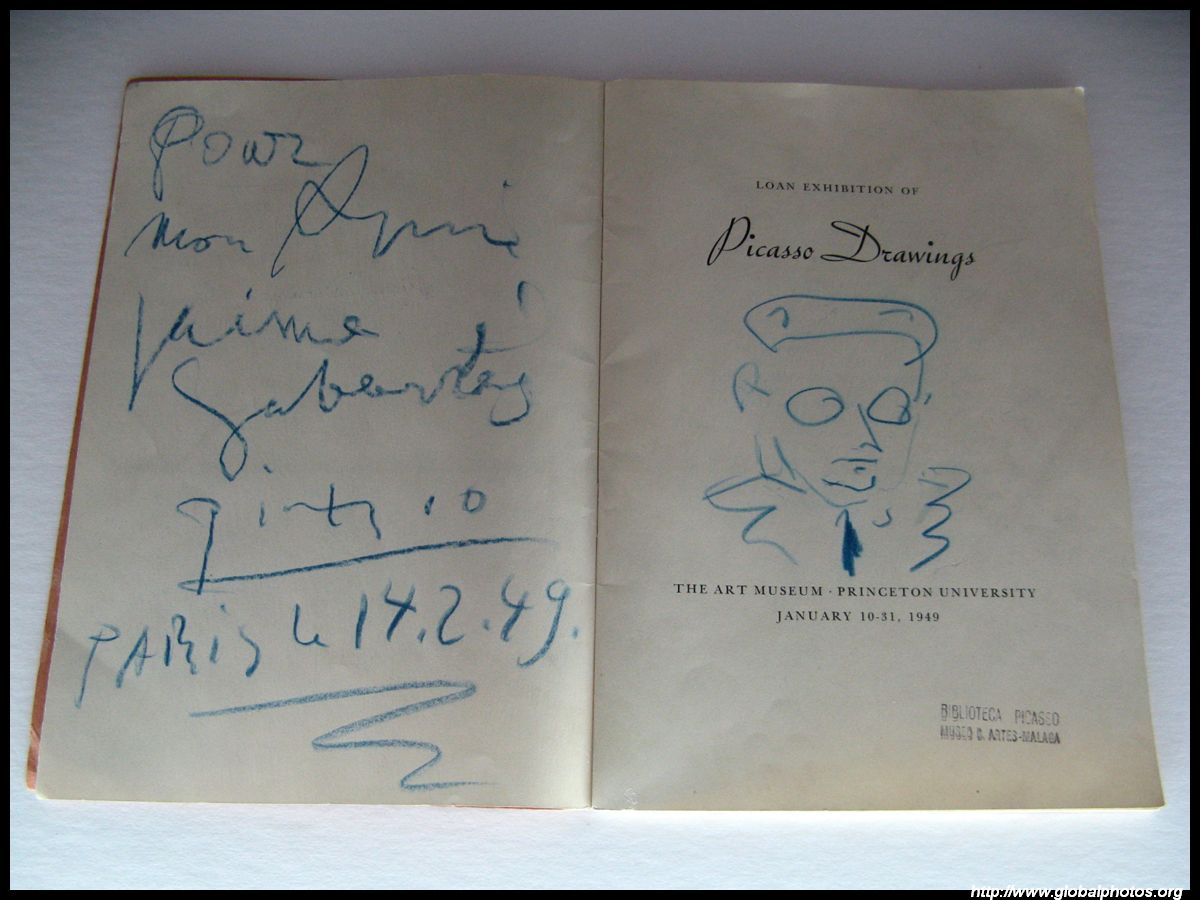 Pour
mon
Jaime
Sabartés
PARIS le 14.2.49.
LOAN EXHIBITION OF
Picasso Drawings
THE ART MUSEUM · PRINCETON UNIVERSITY
JANUARY 10-31, 1949
BIBLIOTECA PICASSO
MUSEO B. ARTES-MALAGA
http://www.globalphotos.org